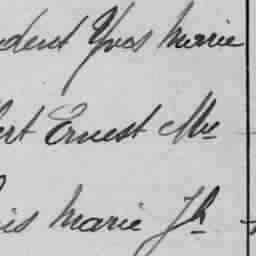 dent Yves Marie
ert Ernest Mie
is Marie Jh